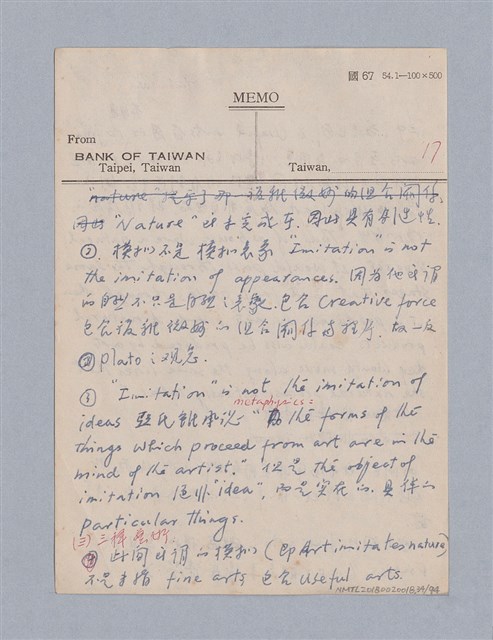 國 67 54.1—100×500
MEMO
From
BANK OF TAIWAN
Taipei, Taiwan
Taiwan,
17
"nature" 提示了那一複雜微妙的組合關係,
因此 "Nature" 是未完成东. 因此具有創造性.
②. 模拟不是模拟表象 "Imitation" is not
the imitation of appearances. 因为他所謂
的自然不只是自然之表象. 包含 Creative force
包含複雜微妙的組合關係与程序. 故一反
Plato 之观念.
③ "Imitation" is not the imitation of
metaphysics:
ideas 亞氏雖承認 "the forms of the
things which proceed from art are in the
mind of the artist." 但是 the object of
imitation 區非 "idea", 而是实在的. 具体的
particular things.
(三) 三種
④ 此間所謂的模拟 (即 Art imitates nature)
不是专指 fine arts 包含 useful arts.
NMTL20130020018